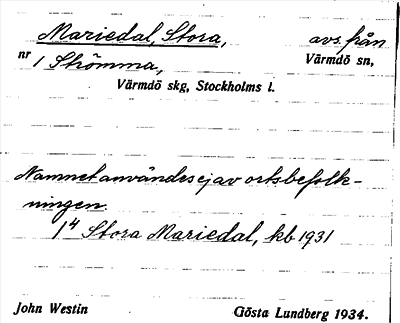 Mariedal, Stora, avs. från
nr 1 Strömma, Värmdö sn,
Värmdö skg, Stockholms l.
Namnet användes ej av ortsbefolk-
ningen.
1⁴ Stora Mariedal, kb 1931
John Westin Gösta Lundberg 1934.